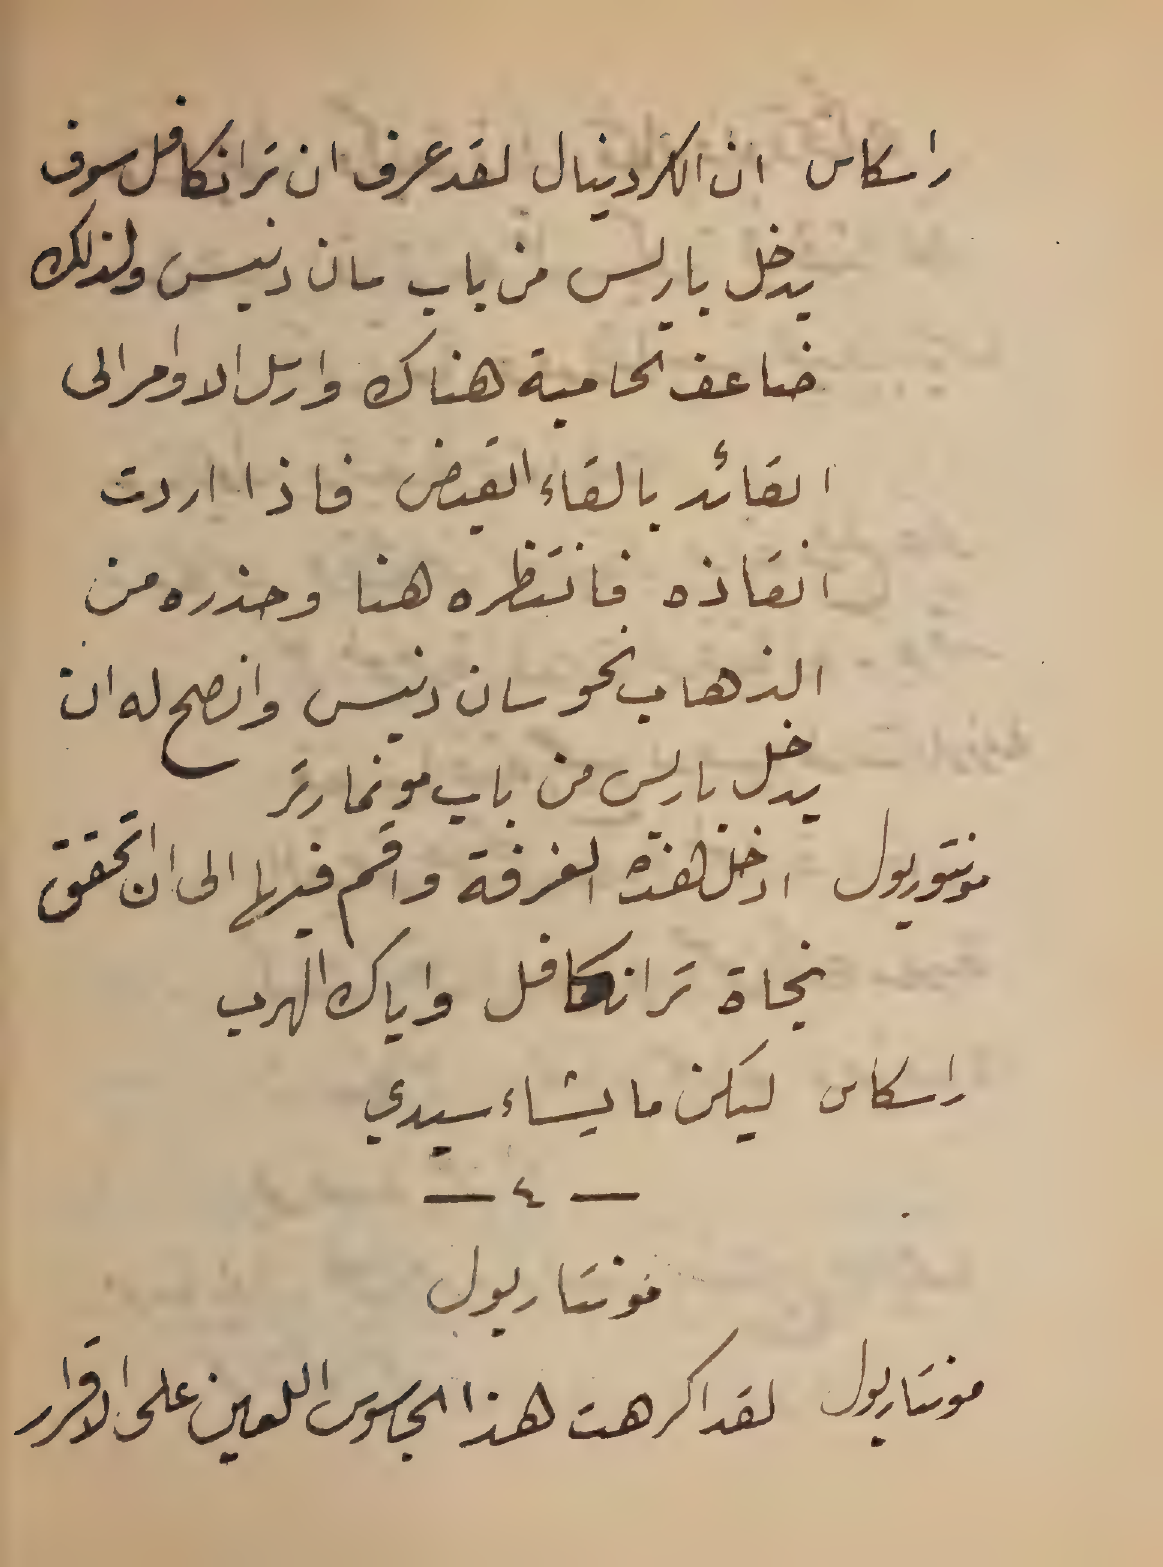 راسكاس ان الكردينال لقد عرف ان ترانكافل سوف
يدخل باريس من باب سان دنيس ولذلك
ضاعف الحامية هناك وارسل الاوامر الى
القائد بالقاء القبض فاذا اردت
انقاذه فانتظره هنا وحذره من
الذهاب نحو سان دنيس وانصح له ان
يدخل باريس من باب مونمارتر
مونتوريول ادخل هذه الغرفة واقم فيها الى ان اتحقق
نجاة ترانكافل واياك الهرب
راسكاس ليكن ما يشاء سيدي
— ٤ —
مونتاريول
مونتاريول لقد اكرهت هذا الجاسوس اللعين على الاقرار